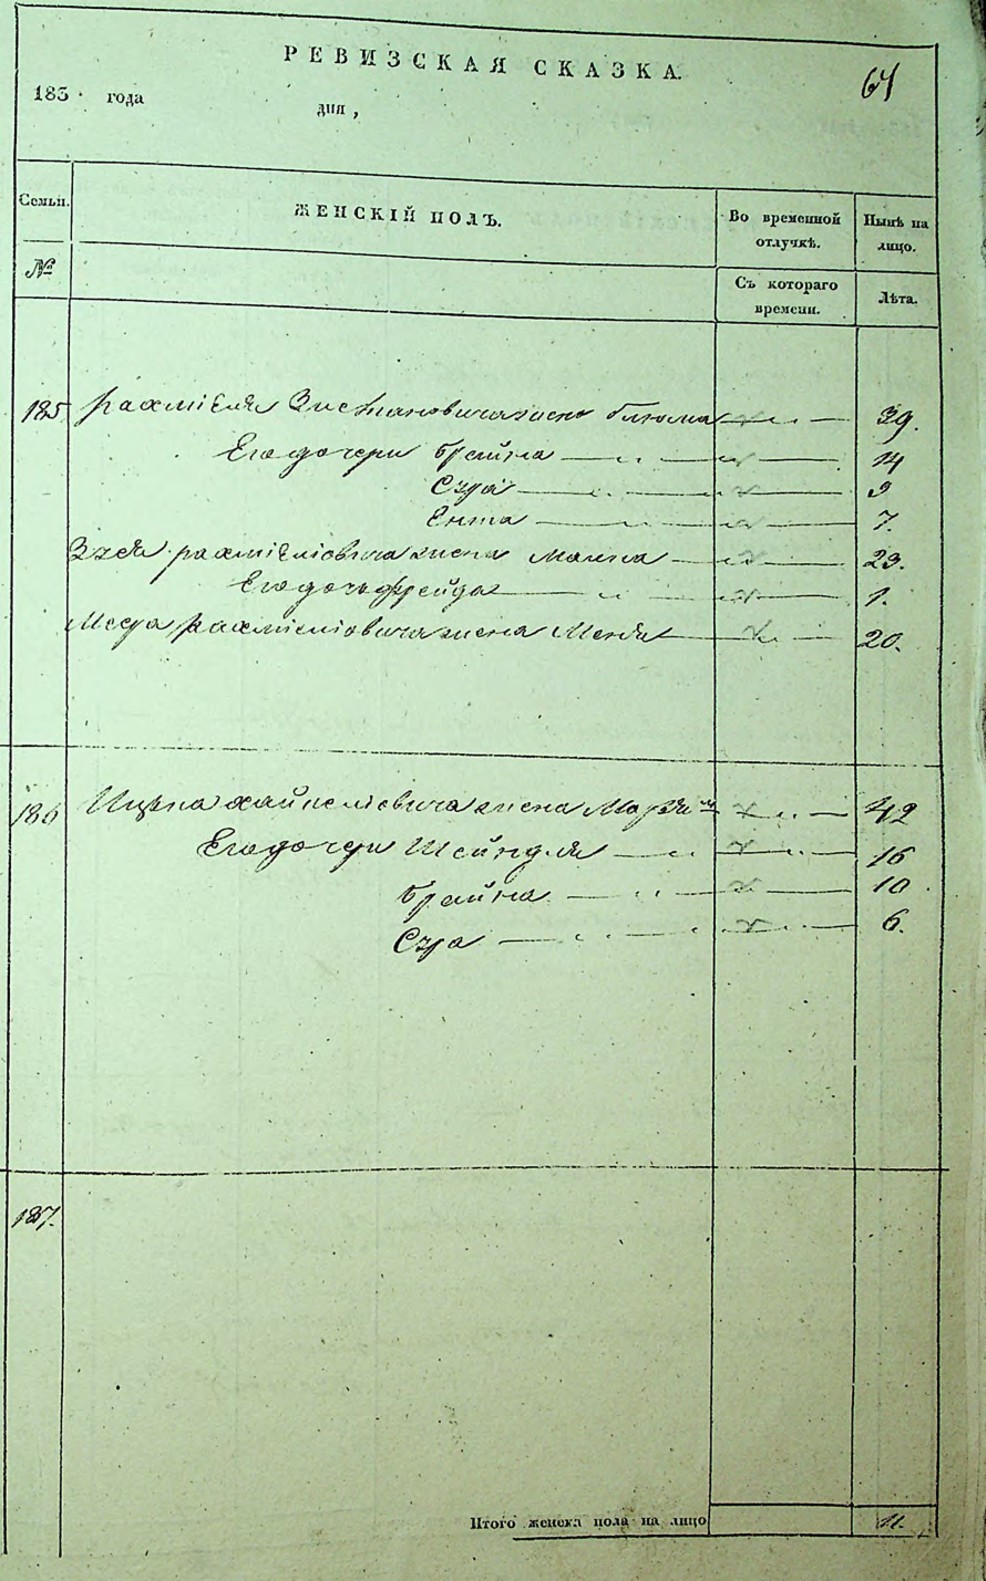 РЕВИЗСКАЯ СКАЗКА.
64
183 года
дня,
Семьи.
ЖЕНСКІЙ ПОЛЪ.
Во временной отлучкѣ.
Нынѣ на лицо.
№
Съ котораго времени.
Лѣта.
185 Рахміеля жена Блюма 39.
Его дочери Брейна 14
Сура 9
Ента 7.
Рахміеліовича жена Малка 23.
Его дочь Фрейда 1.
Рахміеліовича жена Меня 20.
186 Ицка жена 42
Его дочери Шейндля 16
Брайна 10
Сура 6.
187.
Итого женска пола на лицо 11.